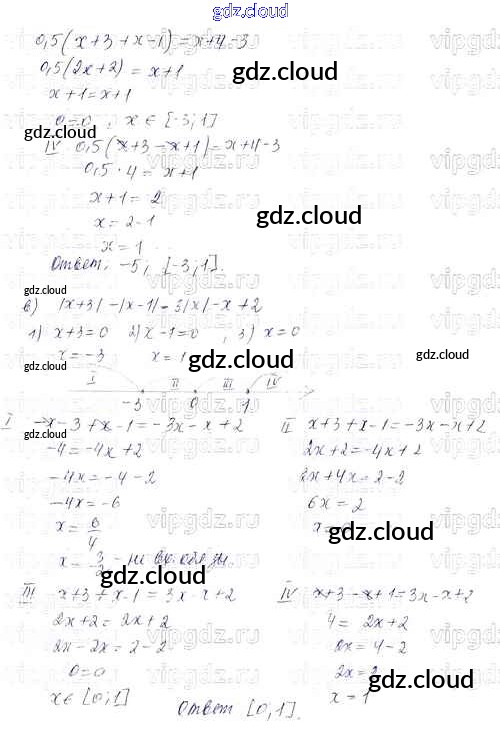 gdz.cloud
0,5(x+3+x-1)=x+4-3
0,5(2x+2)=x+1
x+1=x+1
0=0, x∈[-3;1]
IV 0,5(x+3-x+1)=x+4-3
0,5·4=x+1
x+1=2
x=2-1
x=1
Ответ. -5; [-3;1].
в) |x+3|-|x-1|=3|x|-x+2
1) x+3=0 2) x-1=0, 3) x=0
x=-3 x=1
I II III IV
-3 0 1
I -x-3+x-1=-3x-x+2
-4=-4x+2
-4x=-4-2
-4x=-6
x=6/4
x=3/2 - не
II x+3+x-1=-3x-x+2
2x+2=-4x+2
2x+4x=2-2
6x=2
III x+3+x-1=3x-x+2
2x+2=2x+2
2x-2x=2-2
0=0
x∈[0;1]
IV x+3-x+1=3x-x+2
4=2x+2
2x=4-2
2x=2
x=1
Ответ [0,1].